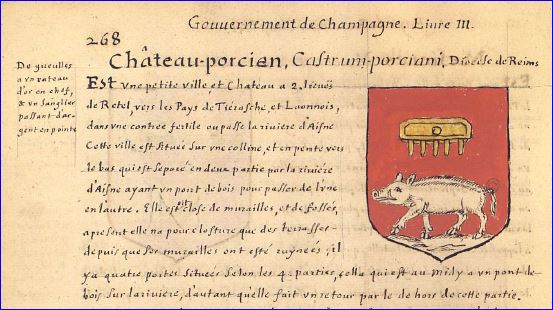 Gouuernement de Champagne. Liure III.
268
Château-porcien, Castrum-porciani, Diocese de Reims
De gueulles
a vn rateau
d'or en chef,
& vn sanglier
passant d'ar-
gent en pointe
Est vne petite ville et Chateau a 2. lieuës
de Retel, vers les Pays de Tierasche, et Laonnois,
dans vne contrée fertile ou passe la riuiere d'Aisne
Cette ville est Située Sur vne colline, et en pente vers
le bas qui est Separé en deux partie par la riuiere
d'Aisne ayant vn pont de bois pour passer de l'vne
en l'autre. Elle estoit close de murailles, et de fossés,
apresent elle na pour closture que des terrasses
depuis que Ses murailles ont esté ruynées; il
y a quatre portes Situées Selon les 4. parties, celle qui est au Midy a vn pont de
bois Sur la riuiere, d'autant qu'elle fait vn retour par le de hors de cette partie.